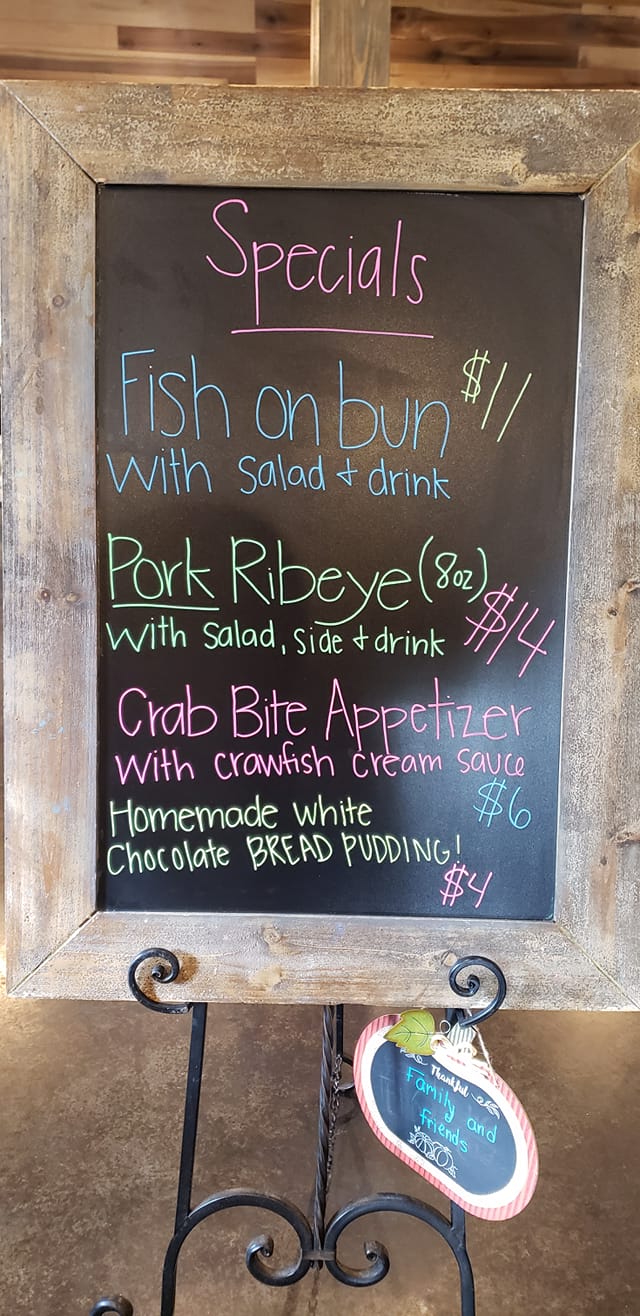 Specials
Fish on bun $11
with salad + drink
Pork Ribeye (8oz)
with salad, side + drink $14
Crab Bite Appetizer
with crawfish cream sauce
$6
Homemade white
Chocolate BREAD PUDDING!
$4
Thankful
Family and
friends